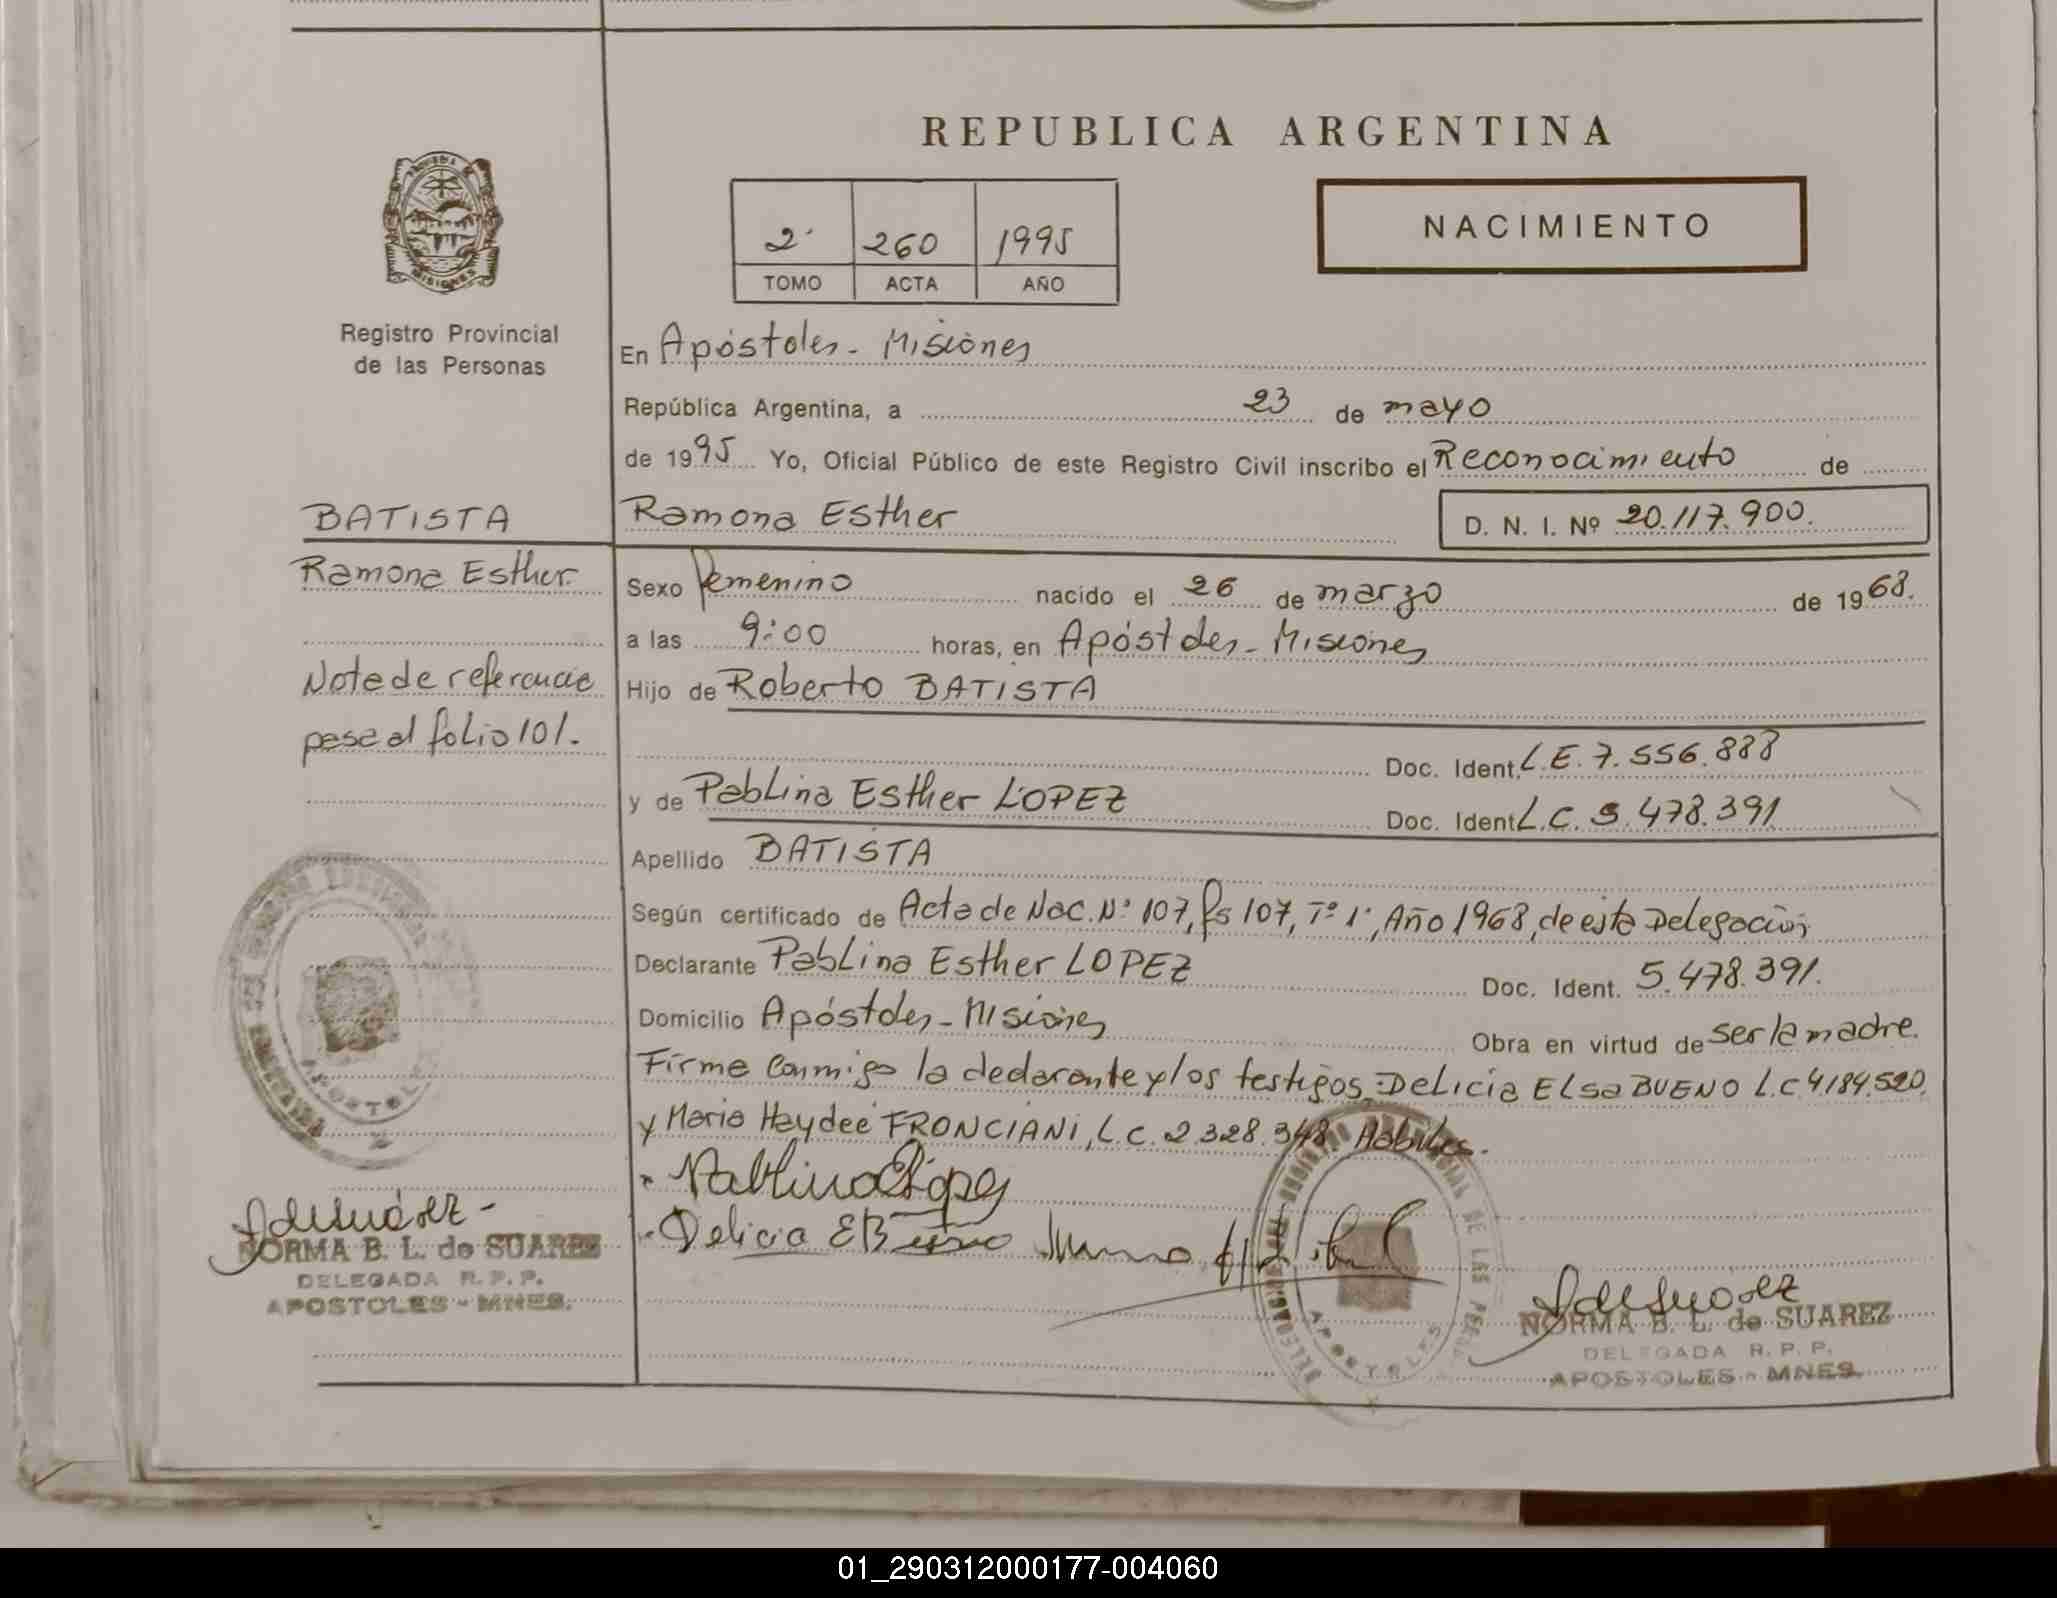 REPUBLICA ARGENTINA
NACIMIENTO
2° 260 1995
TOMO ACTA AÑO
MISIONES
Registro Provincial
de las Personas
En Apóstoles - Misiones
República Argentina, a 23 de mayo
de 1995 Yo, Oficial Público de este Registro Civil inscribo el Reconocimiento de
BATISTA
Ramona Esther
D. N. I. Nº 20.117.900.
Ramona Esther.
Sexo Femenino nacido el 26 de marzo de 1968.
a las 9:00 horas, en Apóstoles - Misiones
Nota de referencia
pasa al folio 101.
Hijo de Roberto BATISTA
Doc. Ident. L.E. 7.556.888
y de Pablina Esther LOPEZ
Doc. Ident. L.C. 5.478.391
Apellido BATISTA
Según certificado de Acta de Nac. Nº 107, fs 107, Tº 1º, Año 1968, de esta Delegación
Declarante Pablina Esther LOPEZ Doc. Ident. 5.478.391.
Domicilio Apóstoles - Misiones Obra en virtud de ser la madre.
Firma conmigo la declarante y los testigos: Delicia Elsa BUENO L.C 4.184.520,
y Maria Haydeé FRONCIANI, L.C. 2.328.348 Hábiles.
Pablina López
Delicia E Bueno
APOSTOLES
NORMA B. L. de SUAREZ
DELEGADA R. P. P.
APOSTOLES - MNES.
APOSTOLES
NORMA B. L. de SUAREZ
DELEGADA R. P. P.
APOSTOLES - MNES.
01_290312000177-004060